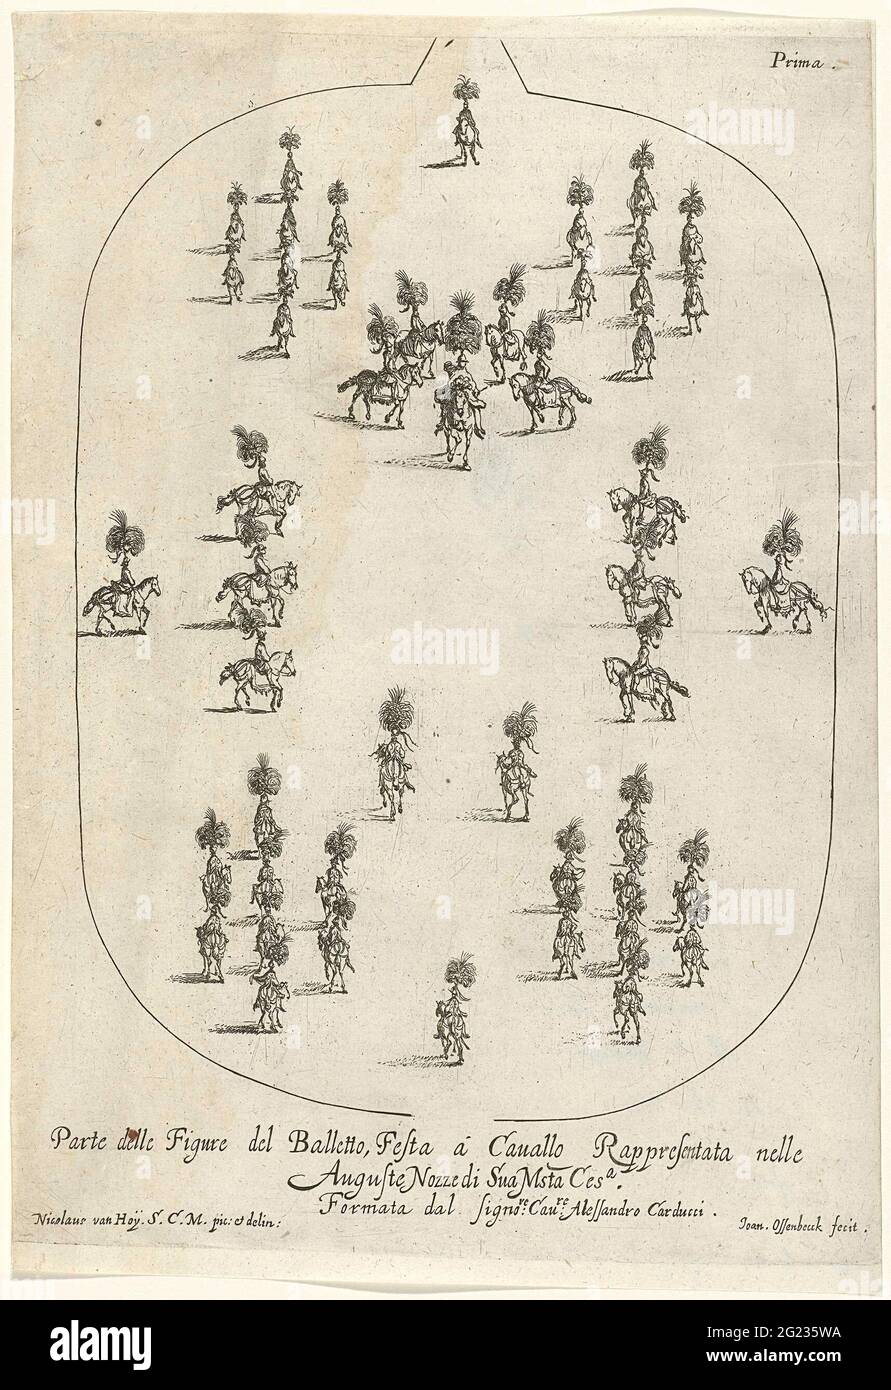 Prima .
Parte delle Figure del Balletto, Festa á Cauallo Rappresentata nelle
Auguste Nozze di Sua Msta Cesa.
Formata dal signore: Caure: Alessandro Carducci .
Nicolaus van Hoÿ. S. C. M. pic: & delin:
Joan. Ossenbeeck fecit .
alamy
alamy
Image ID: 2G235WA
www.alamy.com